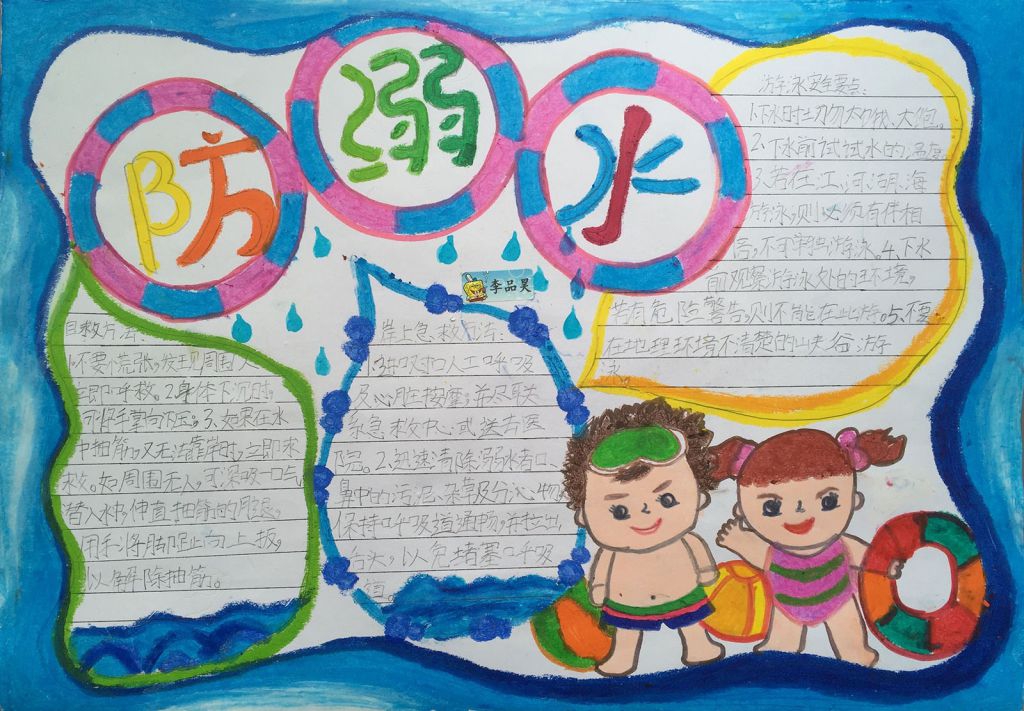 防溺水
李品昊
自救方法:
1.不要慌张,发现周围人
立即呼救。2.身体下沉时,
可将手掌向下压;3、如果在水
中抽筋,又无法靠岸时,立即求
救。如周围无人,可深吸一口气
潜入水中,伸直抽筋的腿,
用手将脚趾向上扳,
以解除抽筋。
岸上急救方法:
人工呼吸
及心脏按摩,并尽快联
系急救中心或送去医
院。2.迅速清除溺水者口、
鼻中的污泥、杂草及分泌物,
保持呼吸道通畅,并拉出
舌头,以免堵塞呼吸
道。
游泳安全要点:
1.下水时切勿太饿、太饱。
2、下水前试试水的温度
3、若在江、河、湖、海
游泳,则必须有伴相
陪,不可单独游泳。4、下水
前观察游泳处的环境。
若有危险警告,则不能在此游。5、不要
在地理环境不清楚的山夹谷游
泳。